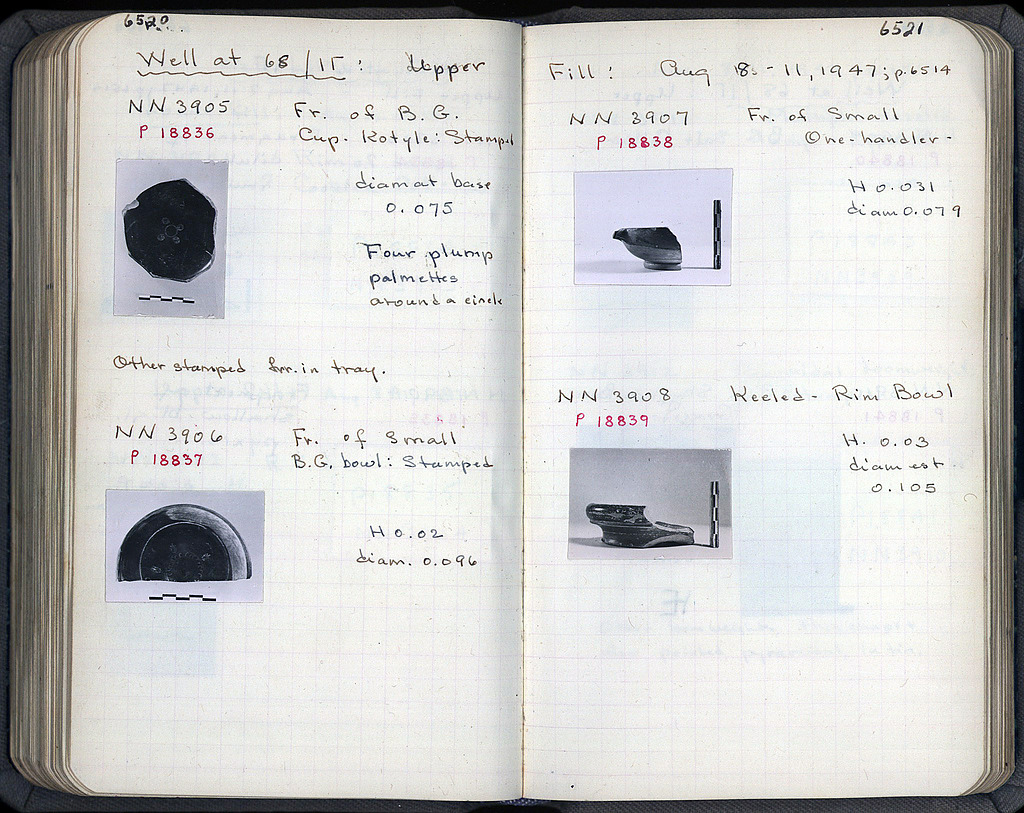 6520
Well at 68/ΙΓ: Upper
NN 3905 Fr. of B.G.
P 18836 Cup-Kotyle: Stamped
diam at base
0.075
Four plump
palmettes
around a circle
Other stamped frr. in tray.
NN 3906 Fr. of Small
P 18837 B.G. bowl: Stamped
H 0.02
diam. 0.096
6521
Fill: Aug 8 - 11, 1947; p. 6514
NN 3907 Fr. of Small
P 18838 One-handler-
H 0.031
diam 0.079
NN 3908 Keeled-Rim Bowl
P 18839
H. 0.03
diam est
0.105